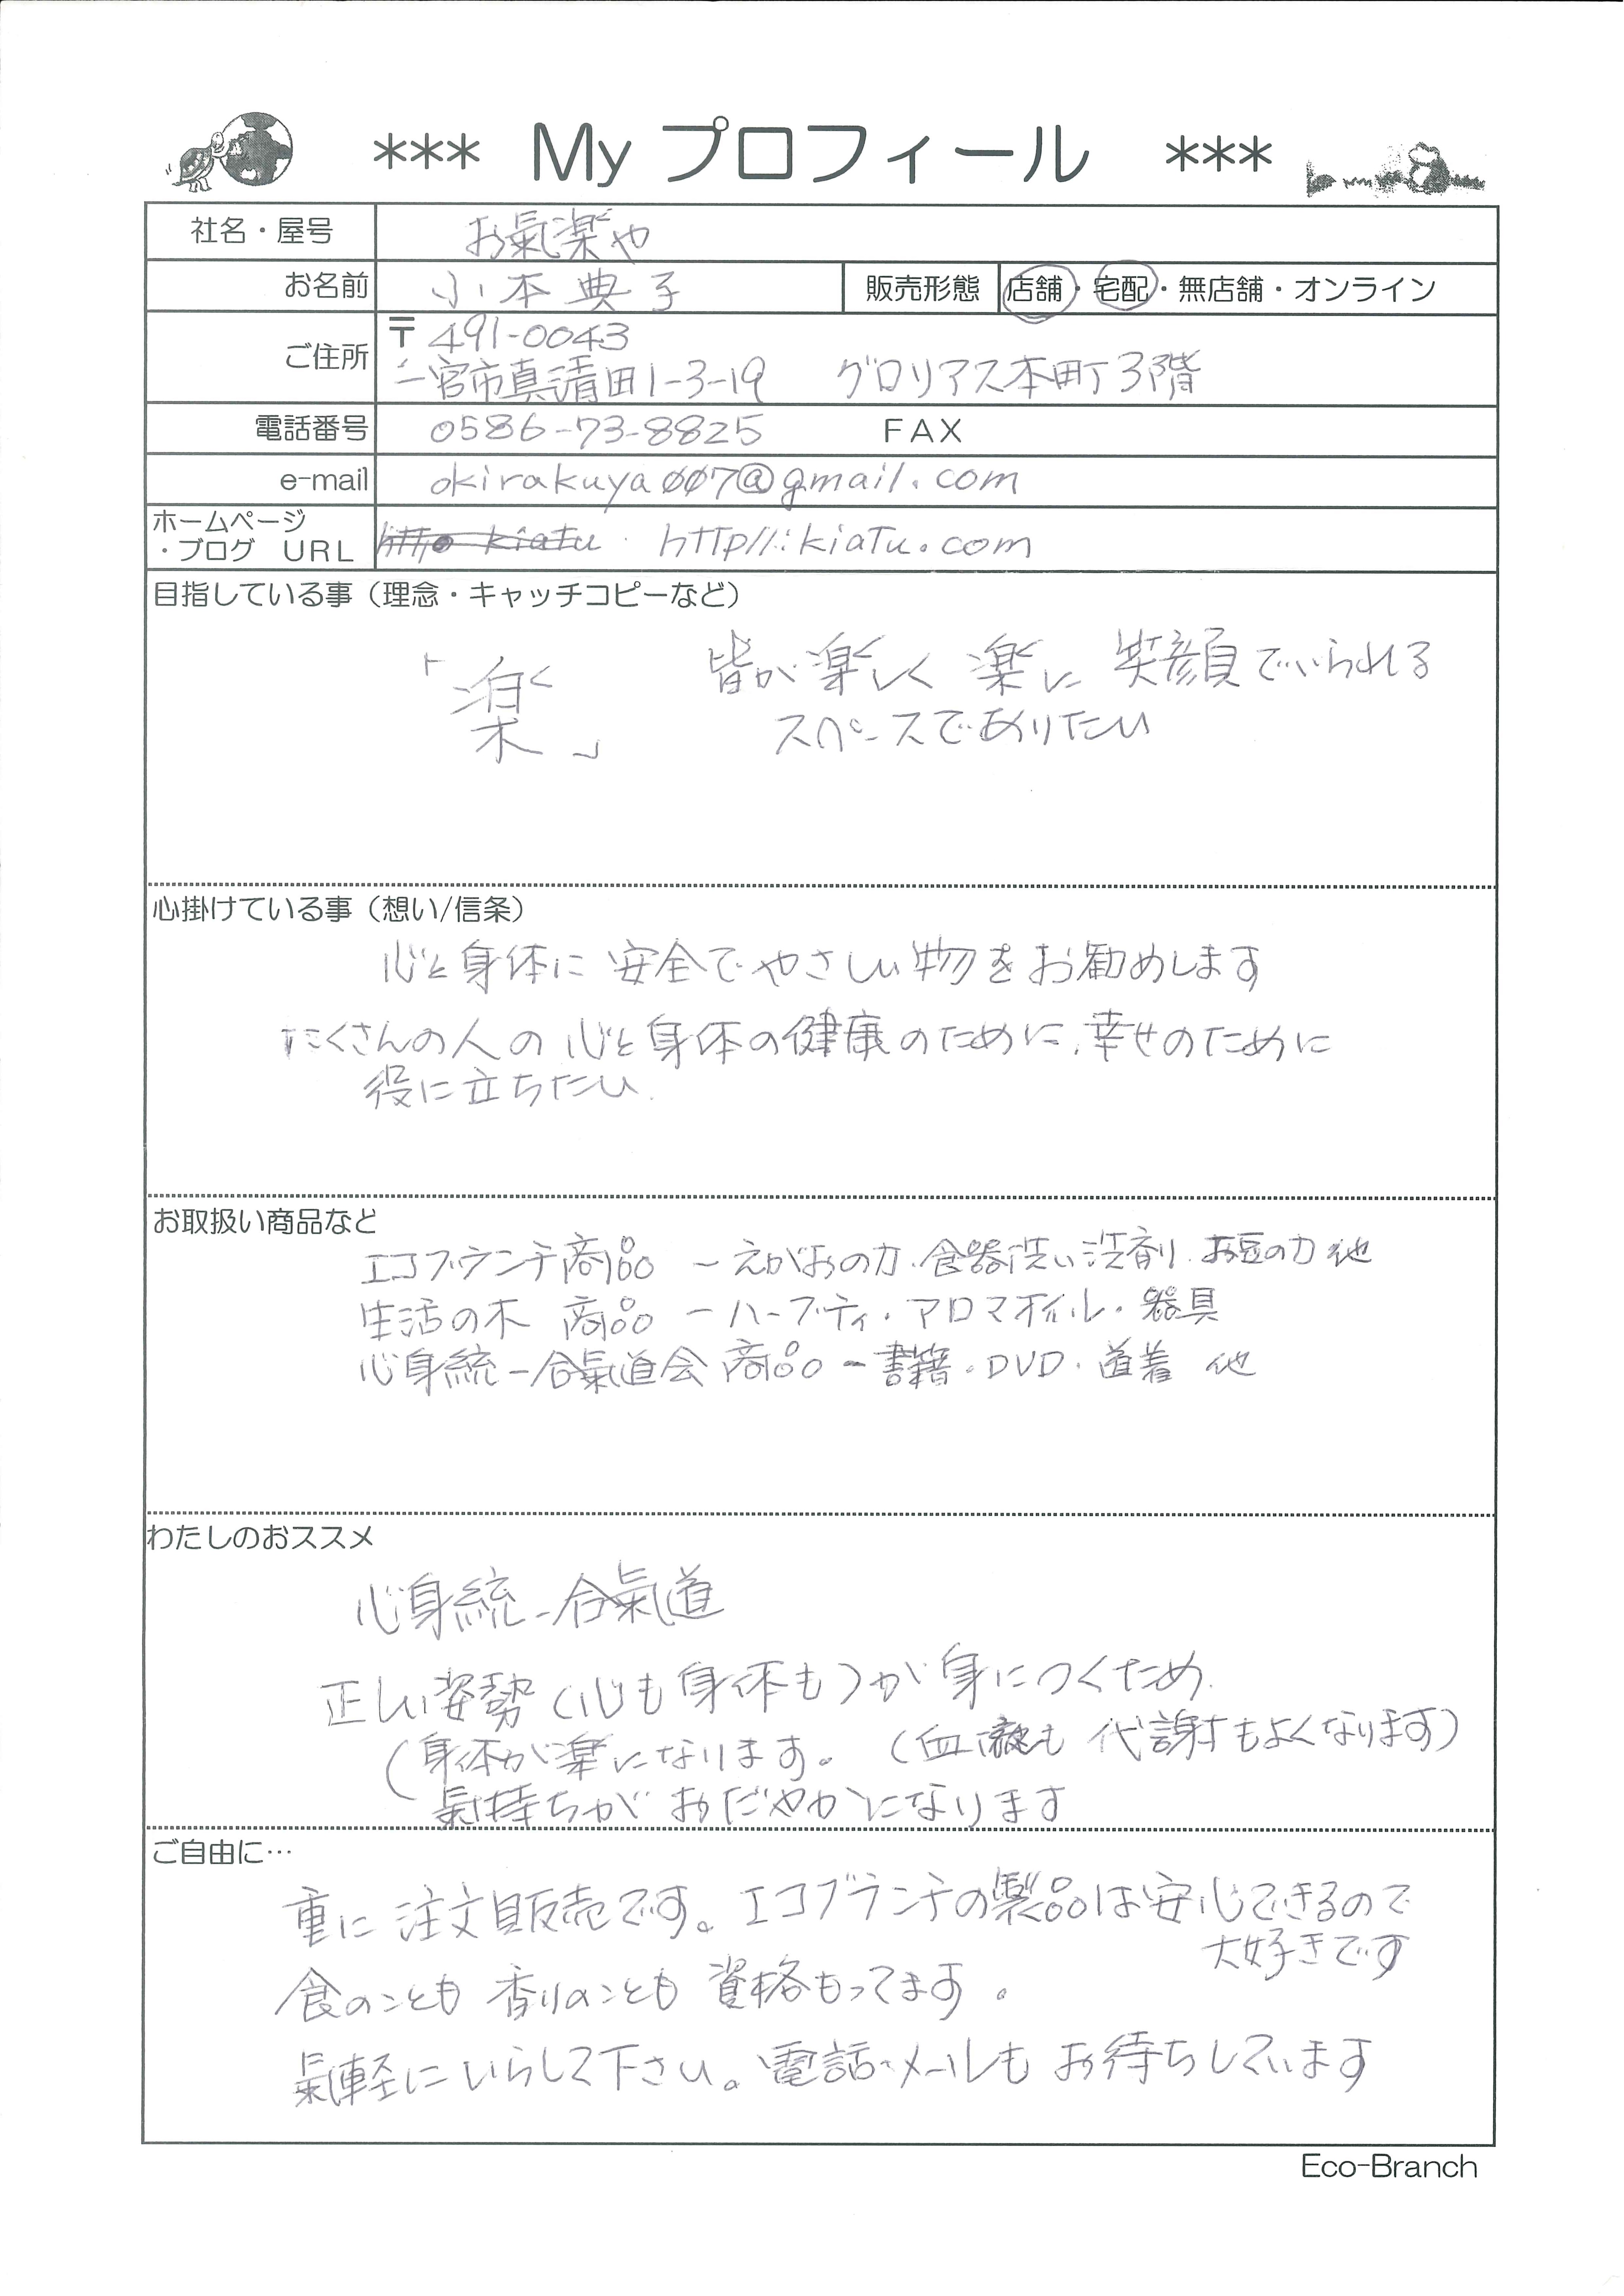 *** My プロフィール ***
社名・屋号 お氣楽や
お名前 小本典子 販売形態 店舗・宅配・無店舗・オンライン
ご住所 〒491-0043
一宮市真清田1-3-19 グロリアス本町3階
電話番号 0586-73-8825 FAX
e-mail okirakuya007@gmail.com
ホームページ
・ブログ URL http//:kiatu.com
目指している事（理念・キャッチコピーなど）
「楽」 皆が楽しく 楽に 笑顔でいられる
スペースでありたい
心掛けている事（想い/信条）
心と身体に 安全でやさしい物をお勧めします
たくさんの人の 心と身体の健康のために、幸せのために
役に立ちたい.
お取扱い商品など
エコブランチ商品 ー えがおの力・食器洗い洗剤・お豆の力 他
生活の木 商品 ーハーブティ・アロマオイル・器具
心身統一合氣道会 商品 ー書籍・DVD・道着 他
わたしのおススメ
心身統一合氣道
正しい姿勢（心も身体も）が身につくため.
（身体が楽になります。（血液も 代謝もよくなります）
氣持ちがおだやかになります
ご自由に…
重に 注文販売です。エコブランチの製品は安心できるので
大好きです
食のことも 香りのことも 資格もってます。
氣軽にいらして下さい。電話・メールも お待ちしています
Eco-Branch